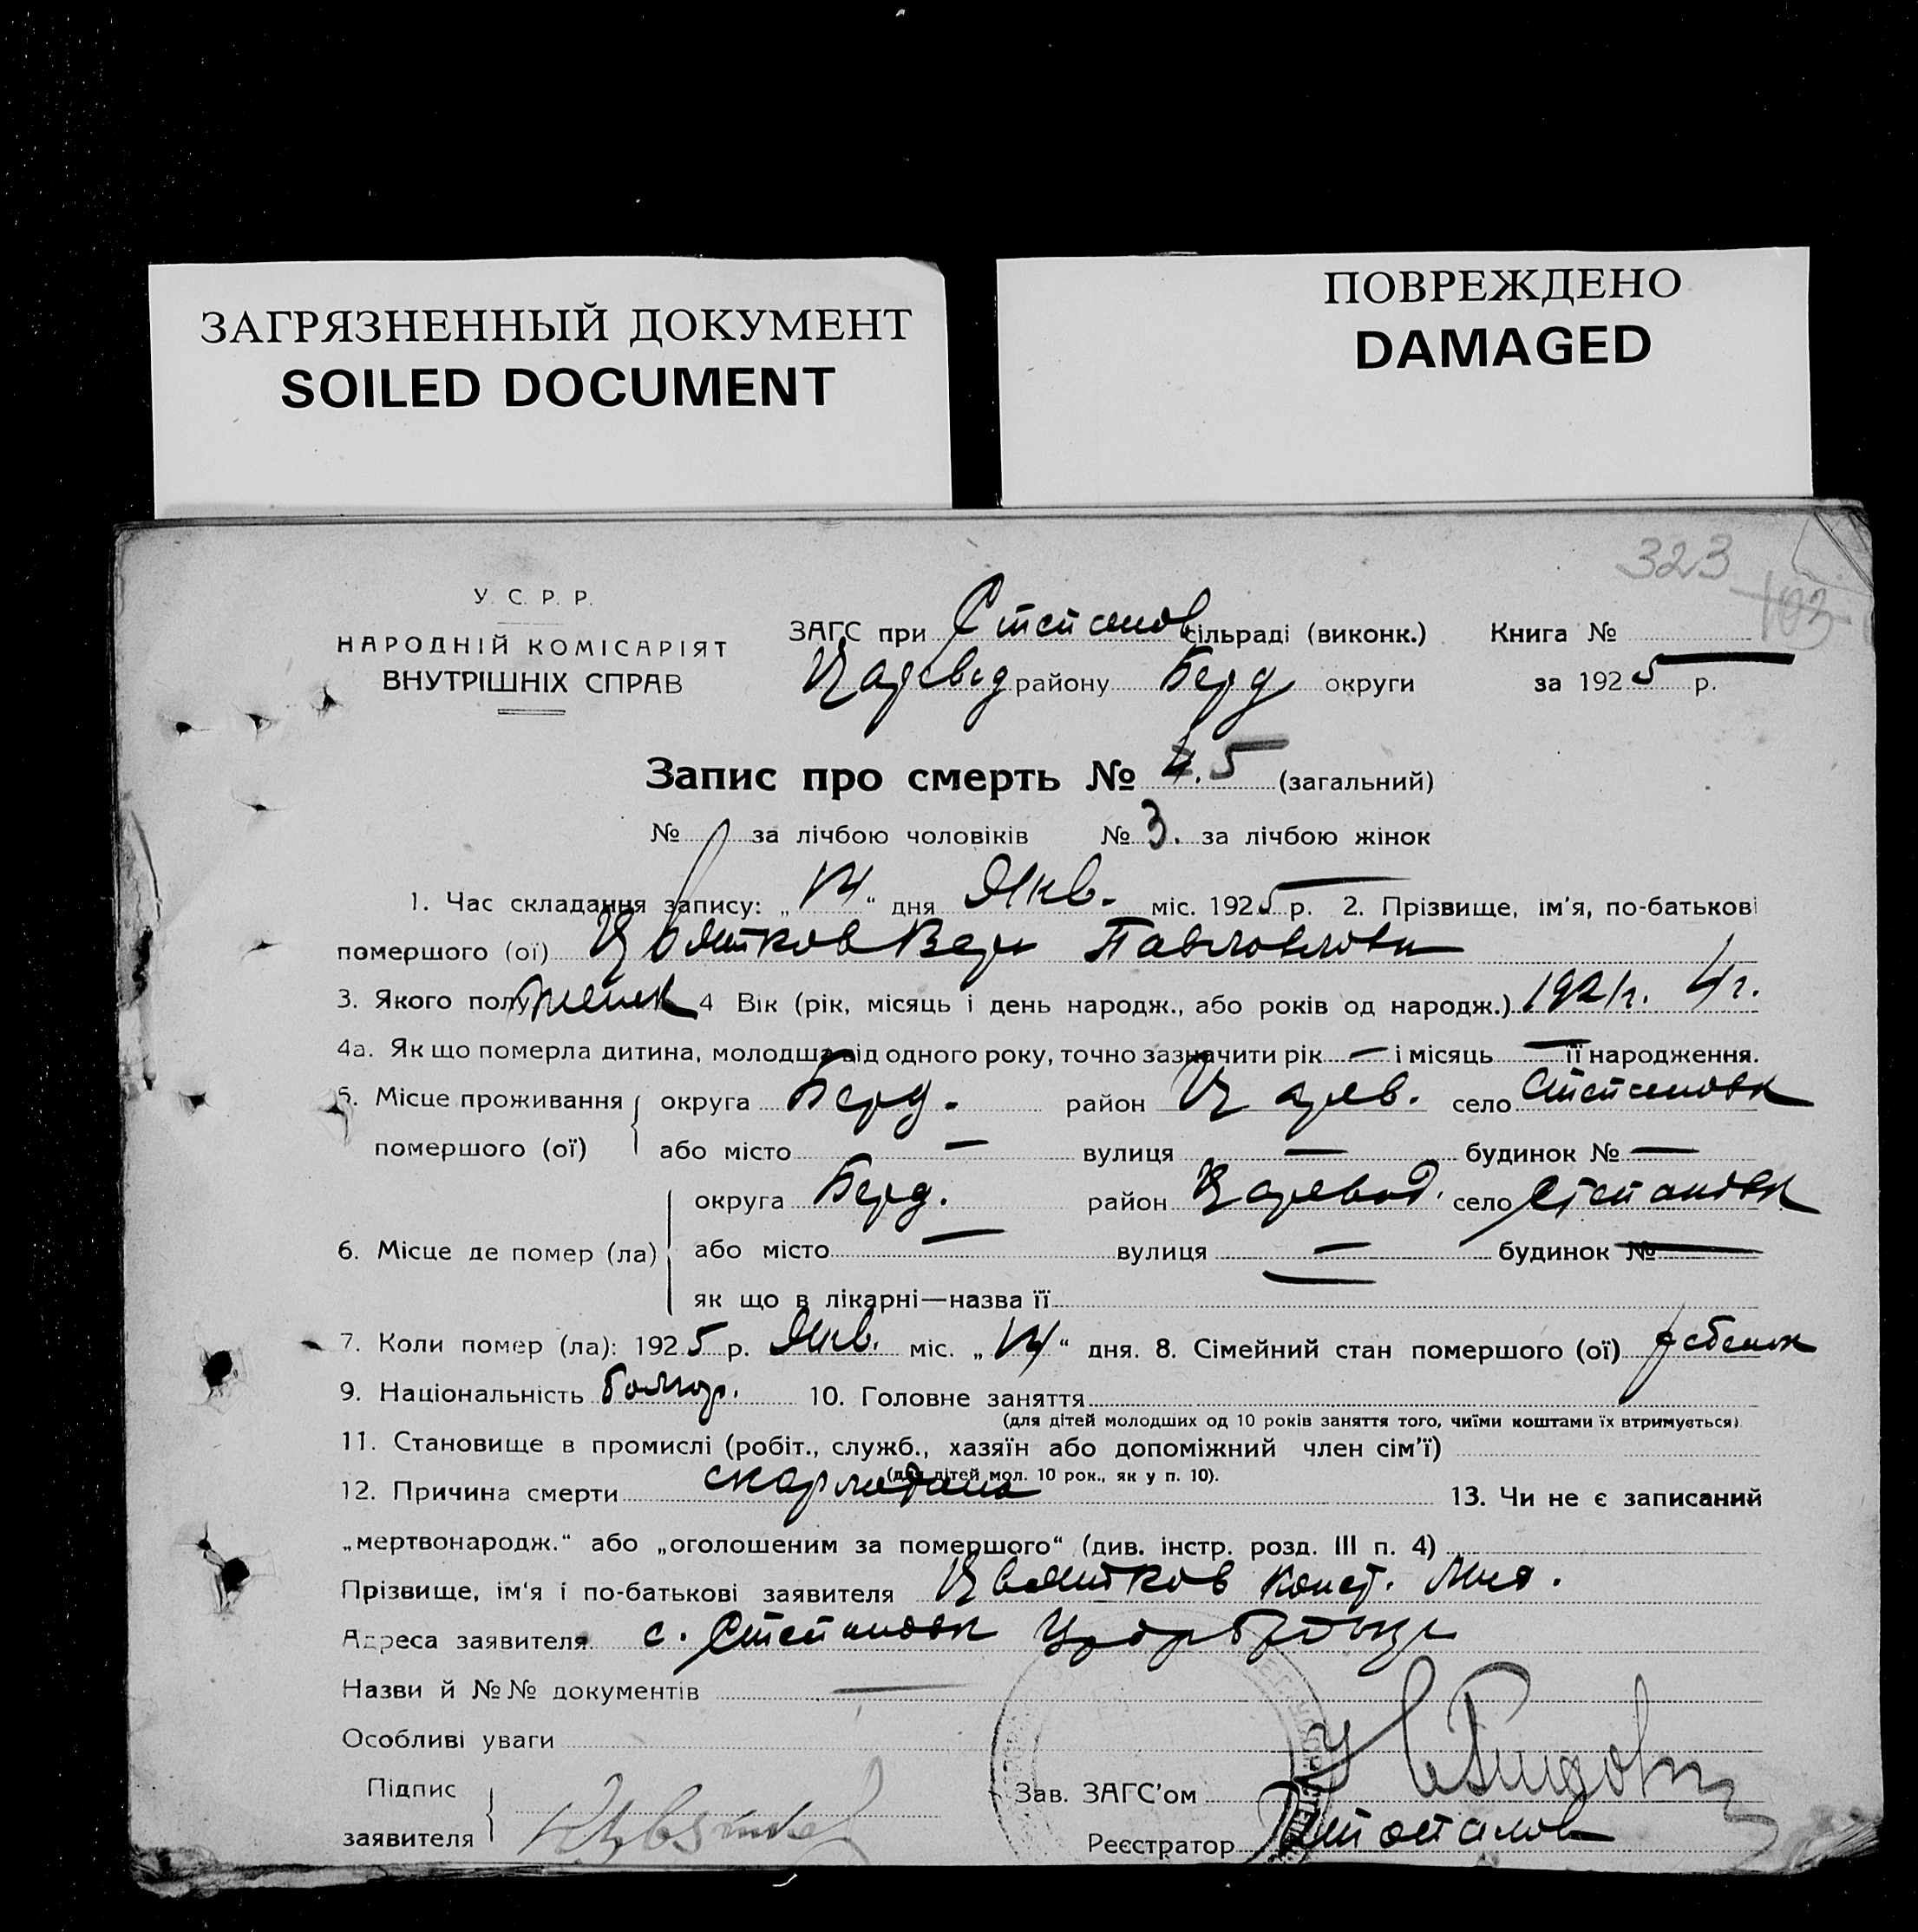 ЗАГРЯЗНЕННЫЙ ДОКУМЕНТ
SOILED DOCUMENT
ПОВРЕЖДЕНО
DAMAGED
323
103
У. С. Р. Р.
НАРОДНІЙ КОМІСАРІЯТ
ВНУТРІШНІХ СПРАВ
ЗАГС при Степанов сільраді (виконк.) Книга №
Царевод району Берд округи за 1925 р.
Запис про смерть № 5 (загальний)
№ за лічбою чоловіків № 3. за лічбою жінок
1. Час складання запису: „14“ дня Янв. міс. 1925 р. 2. Прізвище, ім'я, по-батькові
помершого (ої) Цвятков Вера Павловловн
3. Якого полу женск 4 Вік (рік, місяць і день народж., або років од народж.) 1921г. 4г.
4а. Як що померла дитина, молодша від одного року, точно зазначити рік — і місяць — її народження.
5. Місце проживання округа Берд. район Царев. село Степановк
помершого (ої) або місто — вулиця — будинок № —
округа Берд. район Царевод. село Степановк
6. Місце де помер (ла) або місто — вулиця — будинок № —
як що в лікарні—назва її —
7. Коли помер (ла): 1925 р. Янв. міс. „14“ дня. 8. Сімейний стан помершого (ої) ребенок
9. Національність болгар. 10. Головне заняття
(для дітей молодших од 10 років заняття того, чиїми коштами їх втримується)
11. Становище в промислі (робіт., служб., хазяїн або допоміжний член сім'ї)
(для дітей мол. 10 рок., як у п. 10).
12. Причина смерти скарлатина 13. Чи не є записаний
„мертвонародж.“ або „оголошеним за помершого“ (див. інстр. розд. III п. 4)
Прізвище, ім'я і по-батькові заявителя Цвятков Конст.
Адреса заявителя с. Степановк
Назви й №№ документів —
Особливі уваги
Підпис
заявителя
Зав. ЗАГС'ом
Реєстратор